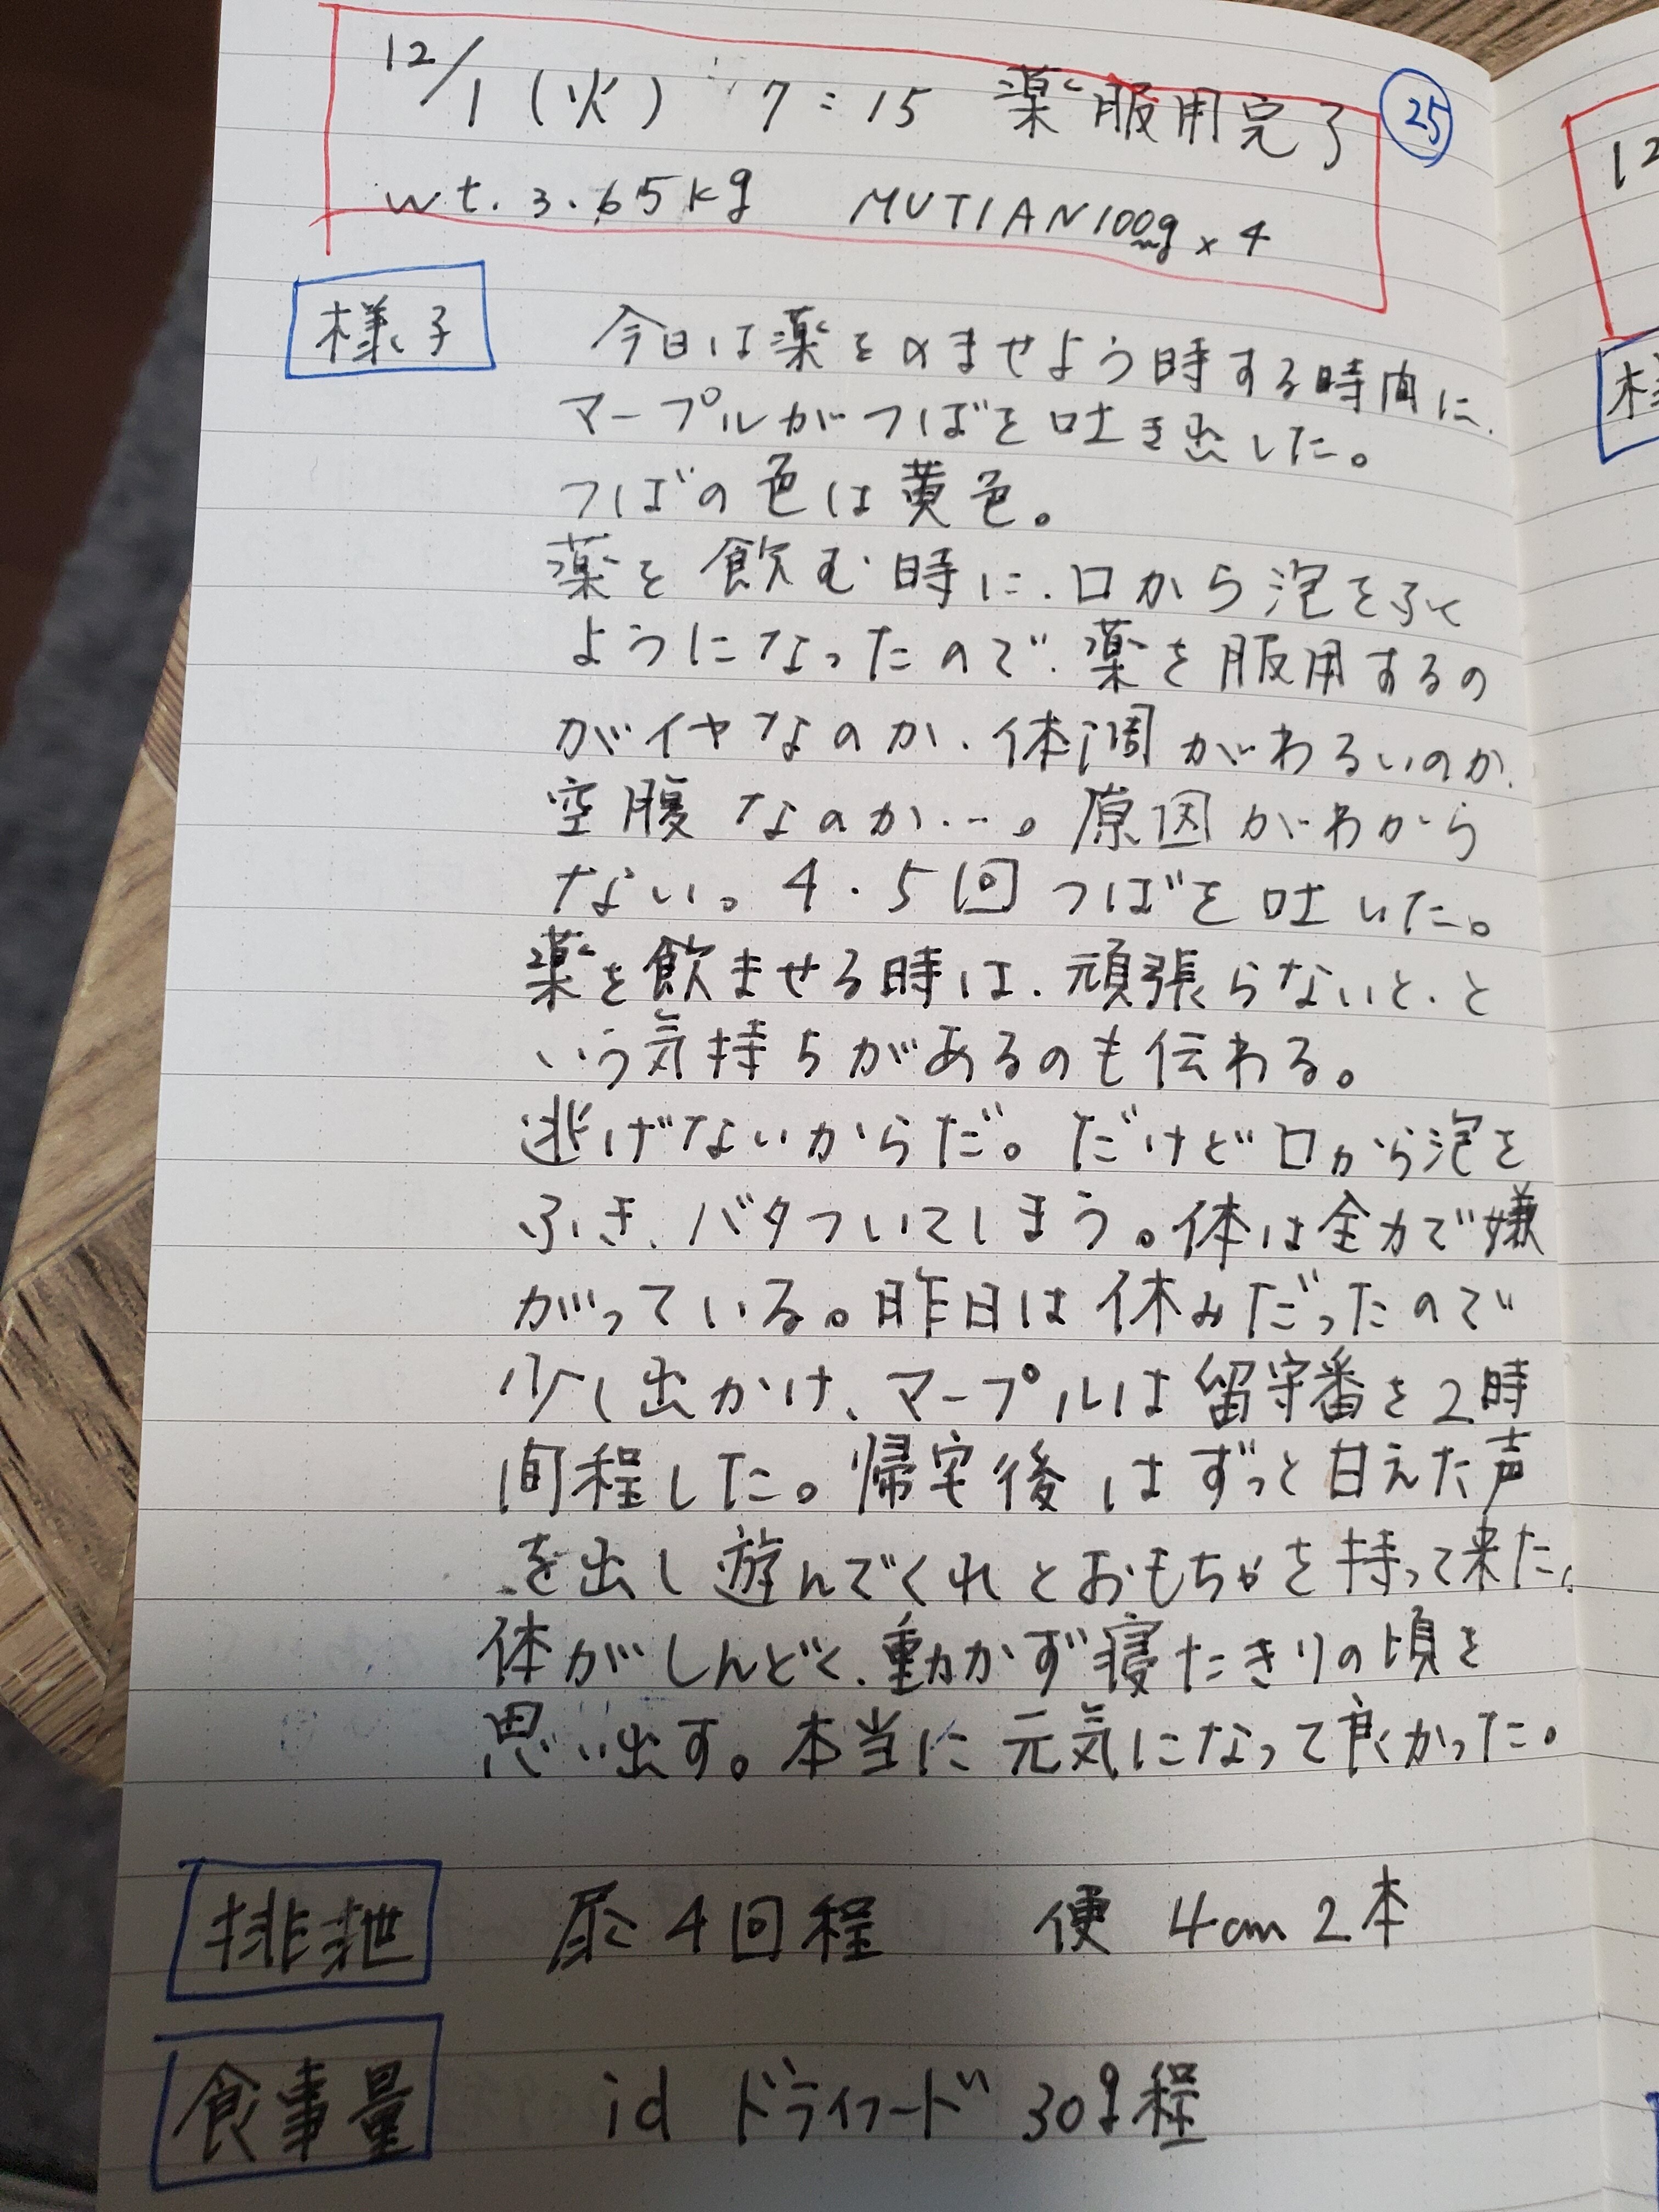 12/1（火） 7：15 薬服用完了
㉕
wt. 3.65kg MUTIAN100mg×4
様子
今日は薬をのませよう時する時間に、
マープルがつばを吐き出した。
つばの色は黄色。
薬を飲む時に、口から泡をふく
ようになったので、薬を服用するの
がイヤなのか、体調がわるいのか、
空腹なのか…。原因がわから
ない。4・5回つばを吐いた。
薬を飲ませる時は、頑張らないと、と
いう気持ちがあるのも伝わる。
逃げないからだ。だけど口から泡を
ふき、バタついてしまう。体は全力で嫌
がっている。昨日は休みだったので
少し出かけ、マープルは留守番を2時
間程した。帰宅後はずっと甘えた声
を出し遊んでくれとおもちゃを持って来た。
体がしんどく、動かず寝たきりの頃を
思い出す。本当に元気になって良かった。
排泄 尿4回程 便 4cm 2本
食事量 id ドライフード 30g程
12